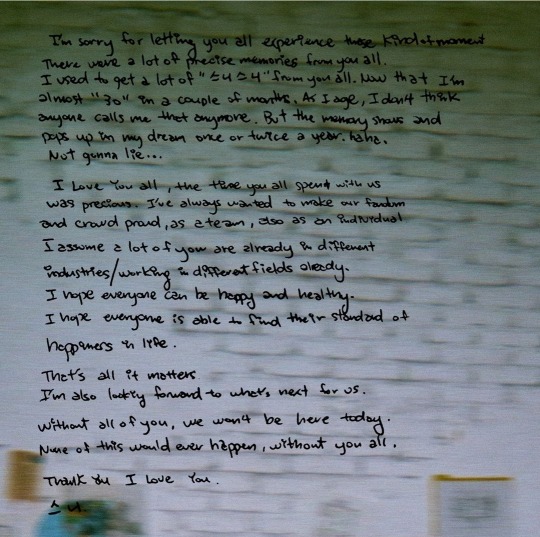 I'm sorry for letting you all experience these kind of moment
There were a lot of precise memories from you all.
I used to get a lot of "스니스니" from you all. Now that I'm
almost "30" in a couple of months. As I age, I don't think
anyone calls me that anymore. But the memory shows and
pops up in my dream once or twice a year. haha.
Not gonna lie...
I Love You all, the time you all spent with us
was precious. I've always wanted to make our fandom
and crowd proud, as a team, also as an individual
I assume a lot of you are already in different
industries/working in different fields already.
I hope everyone can be happy and healthy.
I hope everyone is able to find their standard of
happiness in life.
That's all it matters
I'm also looking forward to what's next for us.
Without all of you, we won't be here today.
None of this would ever happen, without you all.
Thank You I Love You.
스니